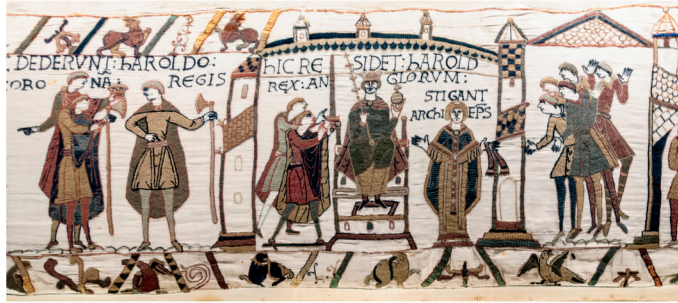 : DEDERVNT : hAROLDO :
CORONĀ : REGIS
hIC RESIDET : hAROLD
REX : ANGLORVM :
STIGANT
ARChIEPS